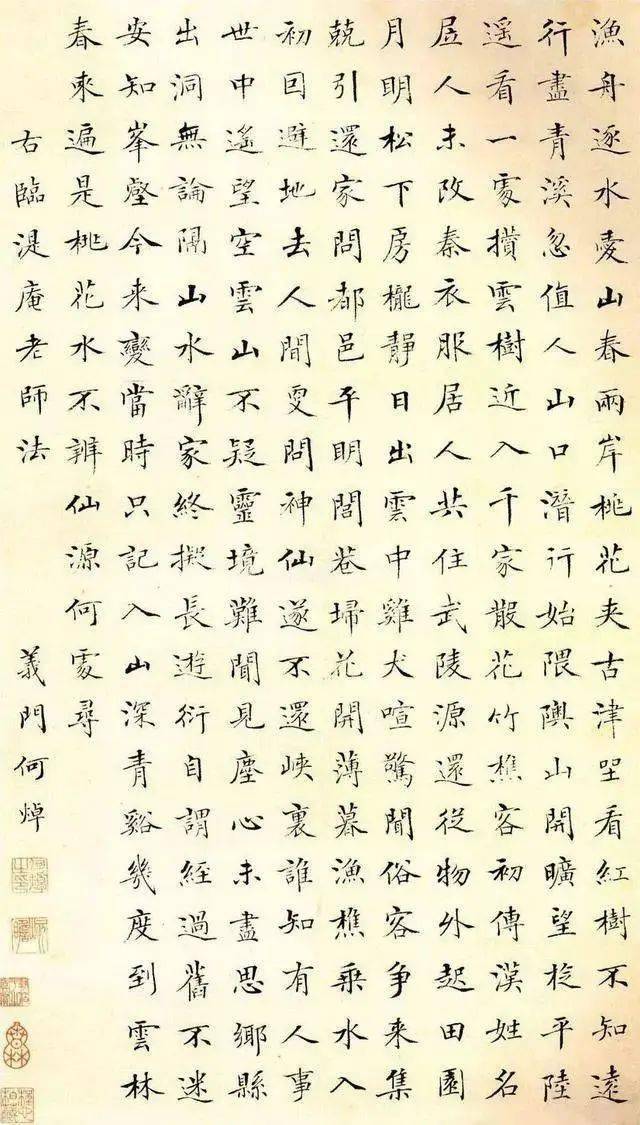 漁舟逐水愛山春兩岸桃花夾古津坐看紅樹不知遠
行盡青溪忽值人山口潛行始隈隩山開曠望旋平陸
遥看一處攢雲樹近入千家散花竹樵客初傳漢姓名
居人未改秦衣服居人共住武陵源還從物外起田園
月明松下房櫳靜日出雲中雞犬喧驚聞俗客爭來集
競引還家問都邑平明閭巷埽花開薄暮漁樵乘水入
初因避地去人間更問神仙遂不還峽裏誰知有人事
世中遥望空雲山不疑靈境難聞見塵心未盡思鄉縣
出洞無論隔山水辭家終擬長遊衍自謂經過舊不迷
安知峯壑今來變當時只記入山深青谿幾度到雲林
春來遍是桃花水不辨仙源何處尋
右臨湜庵老師法 義門何焯